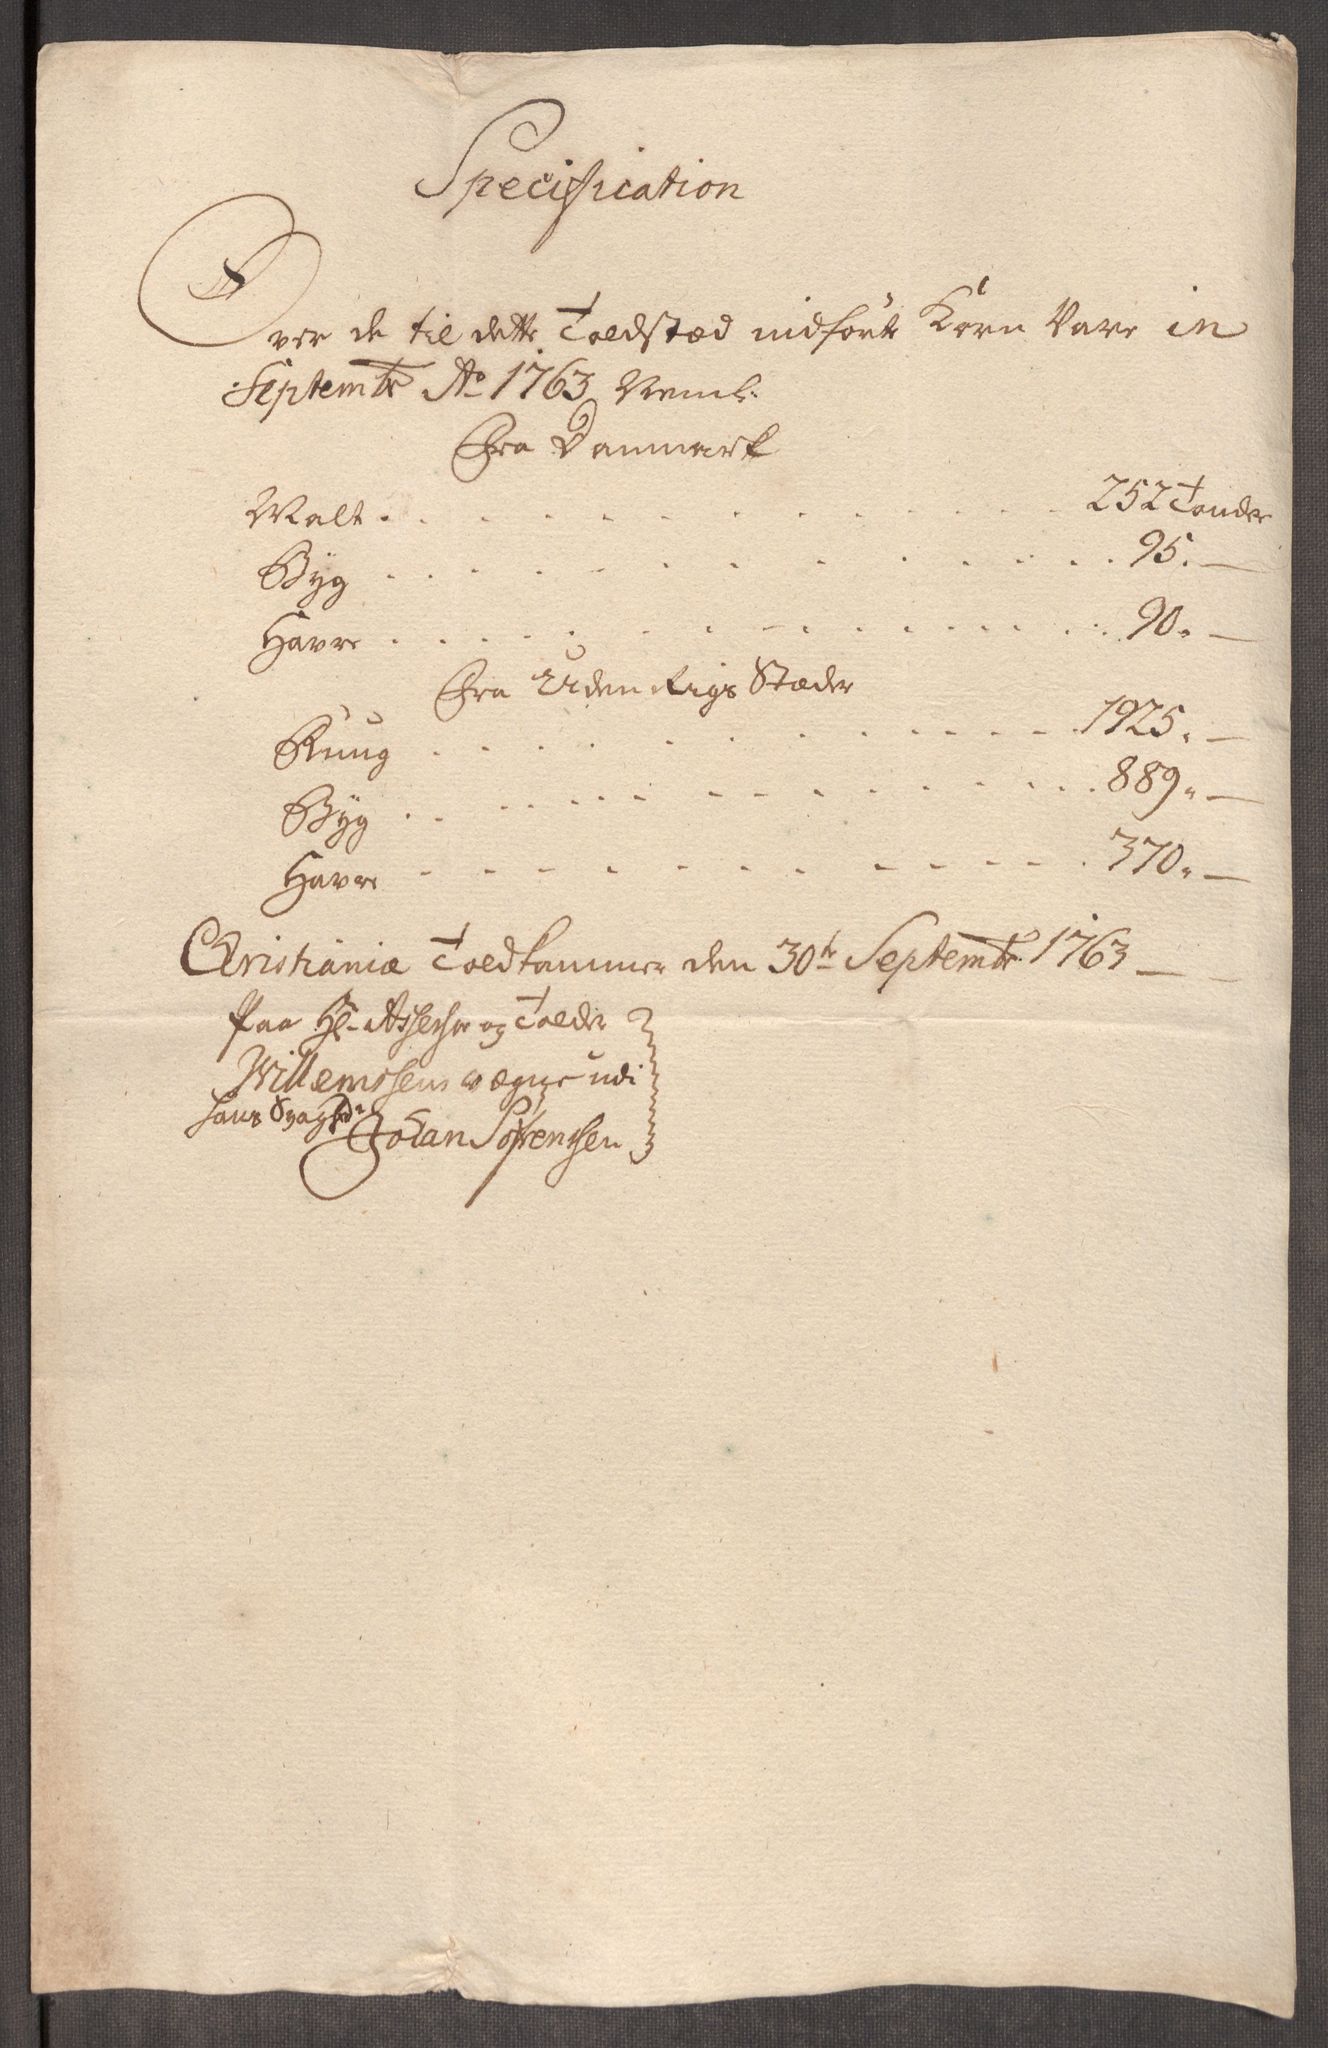 Specification
Over de til dette Toldstæd indførte Korn Vare in
Septembr Ao 1763 Neml:
Fra Danmark
Malt . . . . . . . . . . 252 Tønder
Byg . . . . . . . . . . 95. —
Havre . . . . . . . . . . 90. —
Fra Uden Rigs Stæder
Ruug . . . . . . . . . . 1925. —
Byg . . . . . . . . . . 889. —
Havre . . . . . . . . . . 370. —
Christiania Toldkammer den 30te Septembr 1763 —
Paa Hr Assessor og Tolder
Willemssens vægne udi
hans Svaghed
Johan Sørenssen